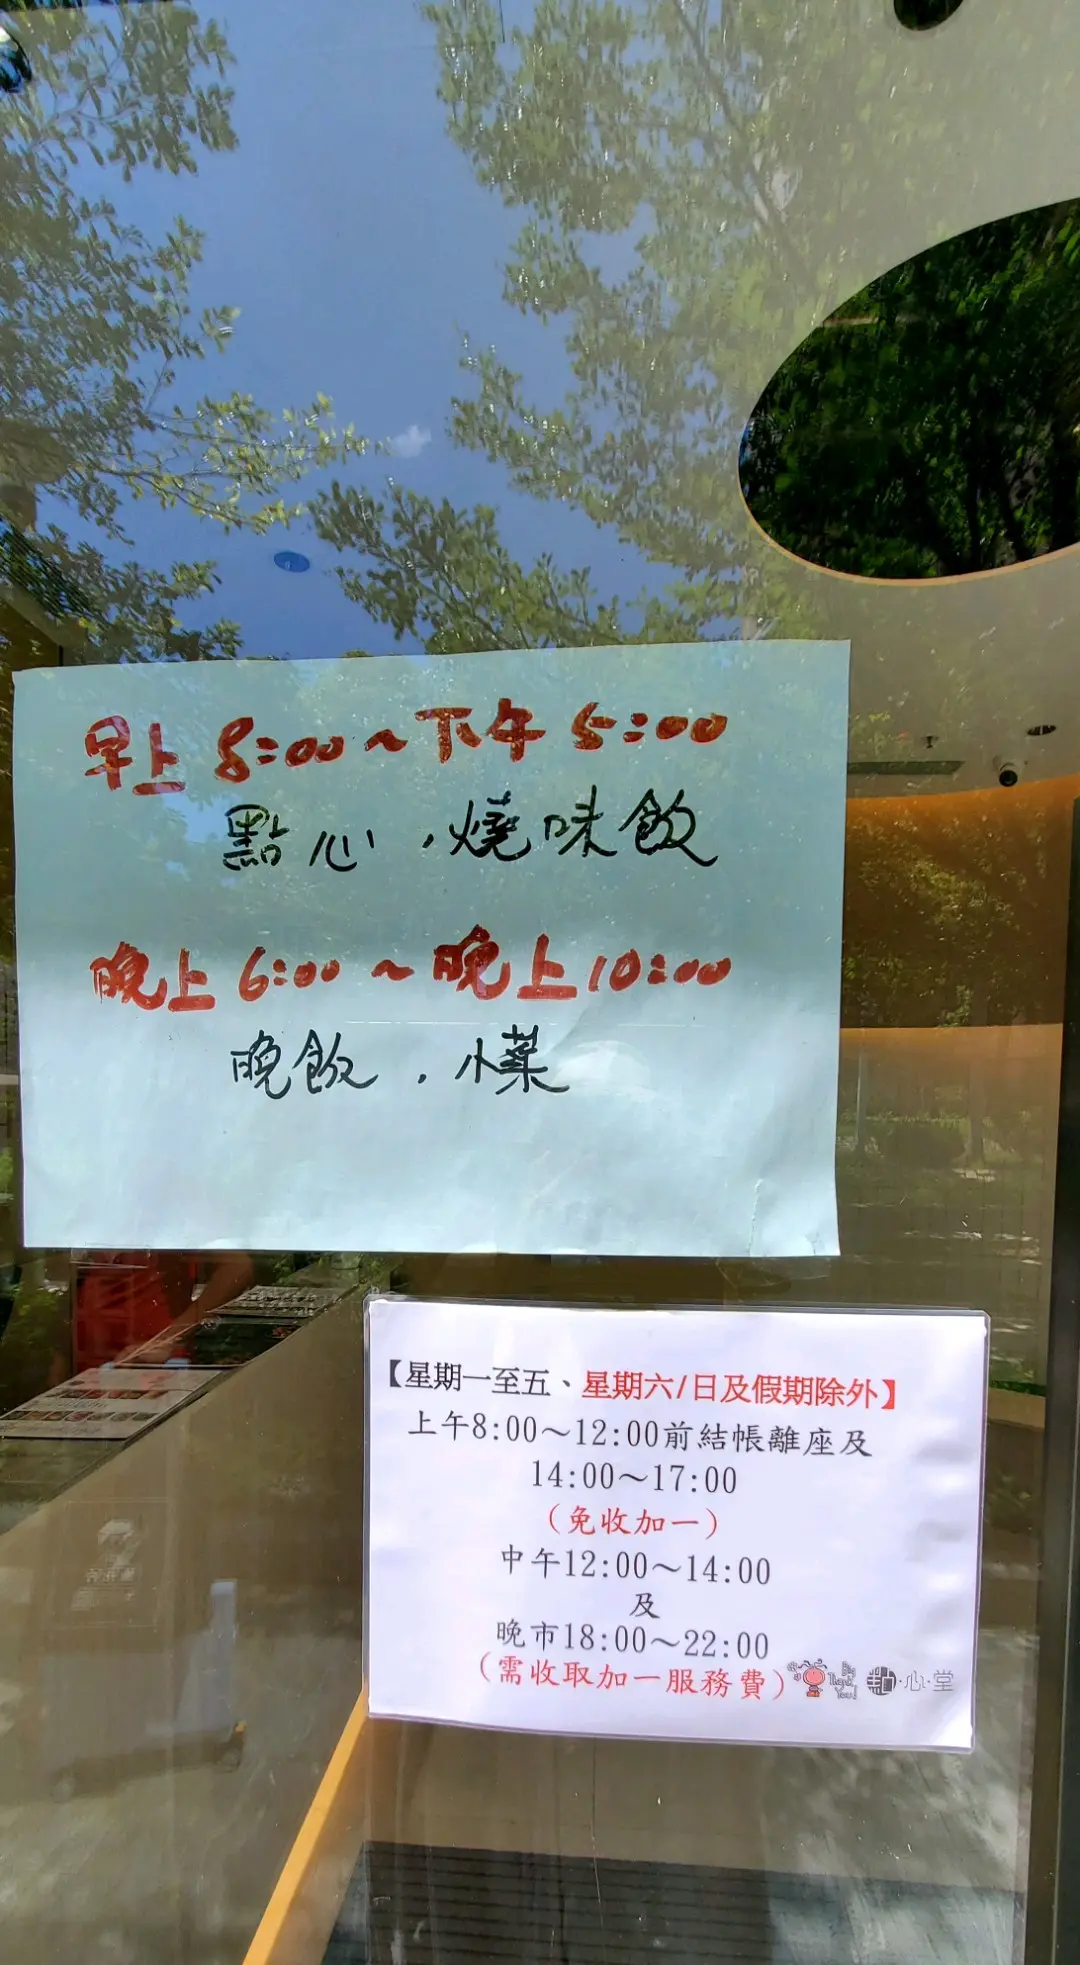 早上 8:00～下午 5:00
點心，燒味飯
晚上 6:00～晚上 10:00
晚飯．小菜
【星期一至五、星期六/日及假期除外】
上午8:00～12:00前結帳離座及
14:00～17:00
（免收加一）
中午12:00～14:00
及
晚市18:00～22:00
（需收取加一服務費）
Big Thank You!
點·心·堂